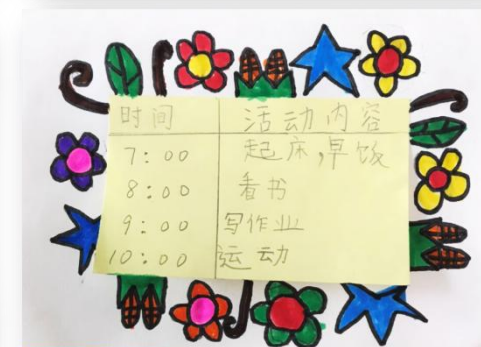 时间 活动内容
7:00 起床,早饭
8:00 看书
9:00 写作业
10:00 运动